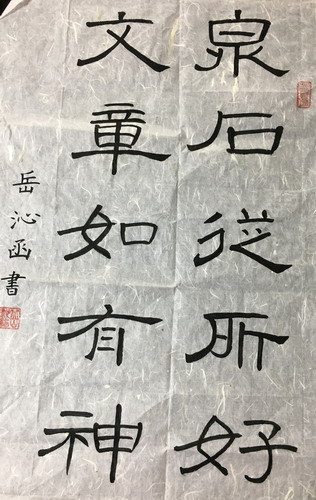 泉石從所好
文章如有神
岳沁函書